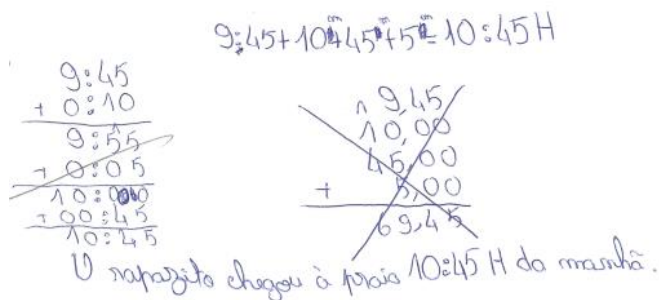 9:45+10m+45m+5m=10:45H
9:45
+ 0:10
9:55
+ 0:05
10:00
+ 00:45
10:45
9,45
10,00
45,00
+ 5,00
69,45
O rapazito chegou à praia 10:45 H da manhã.